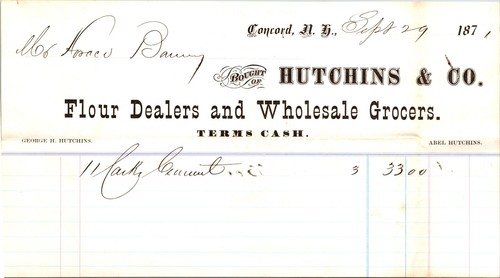 Concord, N. H., Sept 29 1871,
Mr Horace Barney
BOUGHT OF HUTCHINS & CO.
Flour Dealers and Wholesale Grocers.
TERMS CASH.
GEORGE H. HUTCHINS. ABEL HUTCHINS.
11 Casks Cement 3 33 00